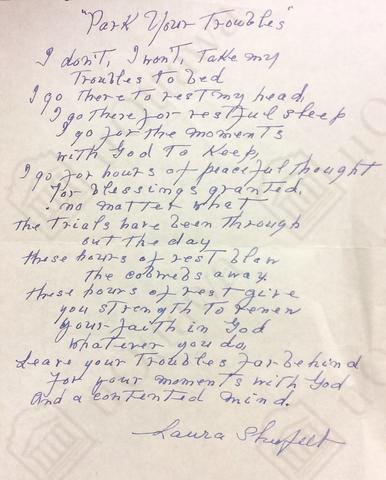 "Park Your Troubles"
I don't, I won't, take my
Troubles to bed
I go there to rest my head,
I go there for restful sleep
I go for the moments
with God to keep,
I go for hours of peaceful thought
for blessings granted,
no matter what
the trials have been through
out the day
these hours of rest blow
the cobwebs away.
these hours of rest give
you strength to renew
your faith in God
whatever you do,
Leave your troubles far behind
for your moments with God
and a contented mind.
Laura Shufelt